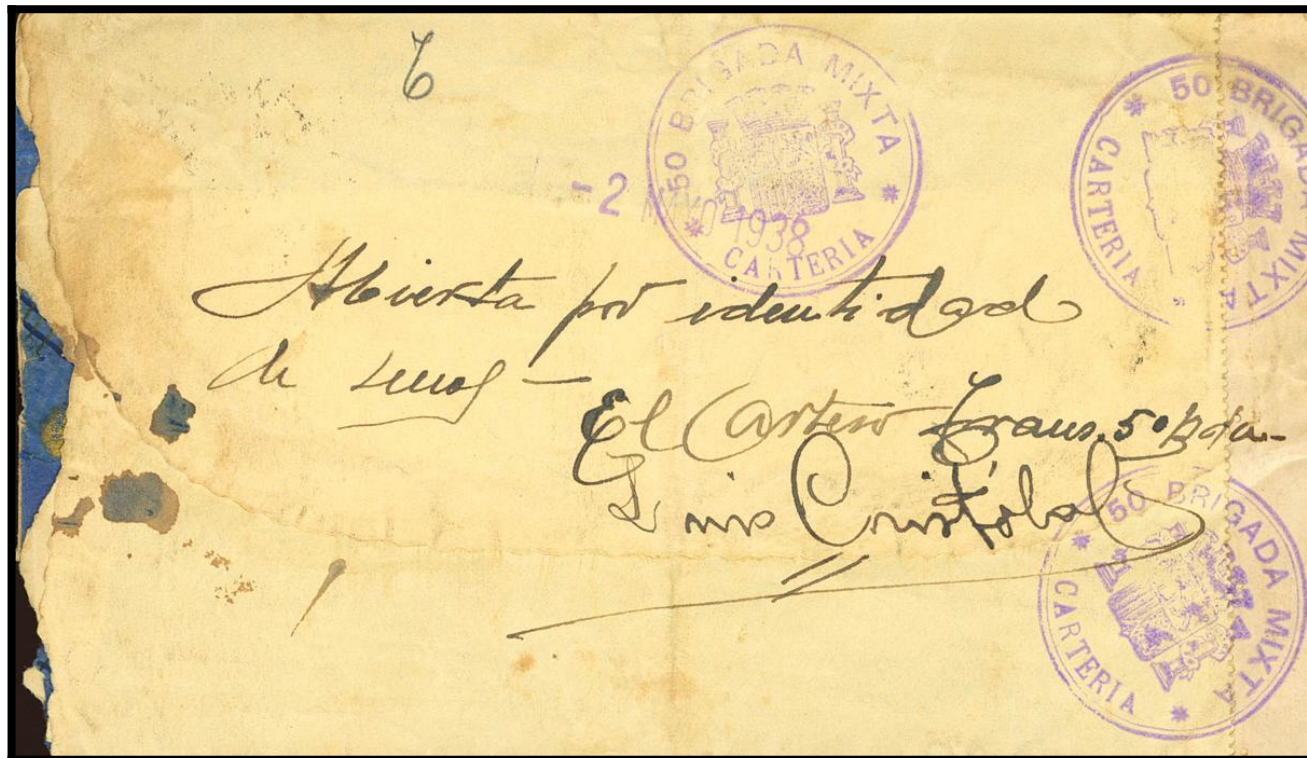 50 BRIGADA MIXTA
CARTERIA
-2 MAYO 1938
50 BRIGADA MIXTA
CARTERIA
Abierta por identidad
de
El Cartero 50 Bda-
Luis Cristóbal
50 BRIGADA MIXTA
CARTERIA